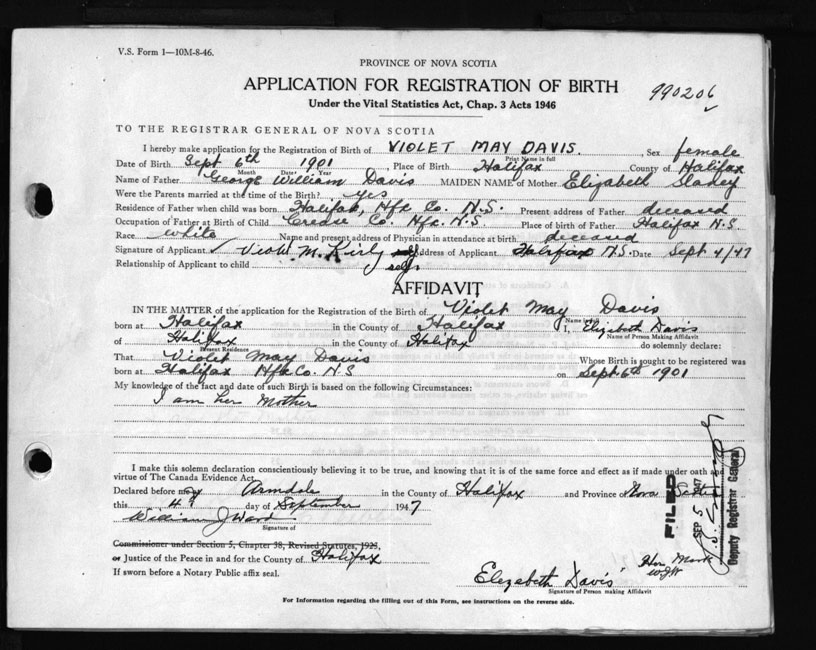 V.S. Form 1—10M-8-46.
PROVINCE OF NOVA SCOTIA
APPLICATION FOR REGISTRATION OF BIRTH
990206
Under the Vital Statistics Act, Chap. 3 Acts 1946
TO THE REGISTRAR GENERAL OF NOVA SCOTIA
I hereby make application for the Registration of Birth of VIOLET MAY DAVIS. Sex female
Print Name in full
Date of Birth Sept 6th 1901, Place of Birth Halifax County of Halifax
Month Date Year
Name of Father George William Davis MAIDEN NAME of Mother Elizabeth
Were the Parents married at the time of the Birth? yes
Residence of Father when child was born Halifax, Hfx Co. N.S. Present address of Father deceased
Occupation of Father at Birth of Child Co. Hfx. N.S Place of birth of Father Halifax N.S
Race white Name and present address of Physician in attendance at birth deceased
Signature of Applicant Violet M. Kirby Address of Applicant Halifax N.S. Date Sept 4/47
Relationship of Applicant to child self
AFFIDAVIT
IN THE MATTER of the application for the Registration of Birth of Violet May Davis
Name in full
born at Halifax in the County of Halifax I, Elizabeth Davis
Name of Person Making Affidavit
of Halifax in the County of Halifax do solemnly declare:
Present Residence
That Violet May Davis Whose Birth is sought to be registered was
born at Halifax Hfx Co. N.S on Sept. 6th 1901
My knowledge of the fact and date of such Birth is based on the following Circumstances:
I am her Mother
I make this solemn declaration conscientiously believing it to be true, and knowing that it is of the same force and effect as if made under oath and
virtue of The Canada Evidence Act.
Declared before me at Armdale in the County of Halifax and Province of Nova Scotia
this 4 day of September 1947
William J Ward
Signature of
Commissioner under Section 5, Chapter 38, Revised Statutes, 1923,
or Justice of the Peace in and for the County of Halifax
If sworn before a Notary Public affix seal.
Elizabeth Davis
Her Mark
Signature of Person making Affidavit
For Information regarding the filling out of this Form, see instructions on the reverse side.
FILED
SEP 5 1947
Deputy Registrar General